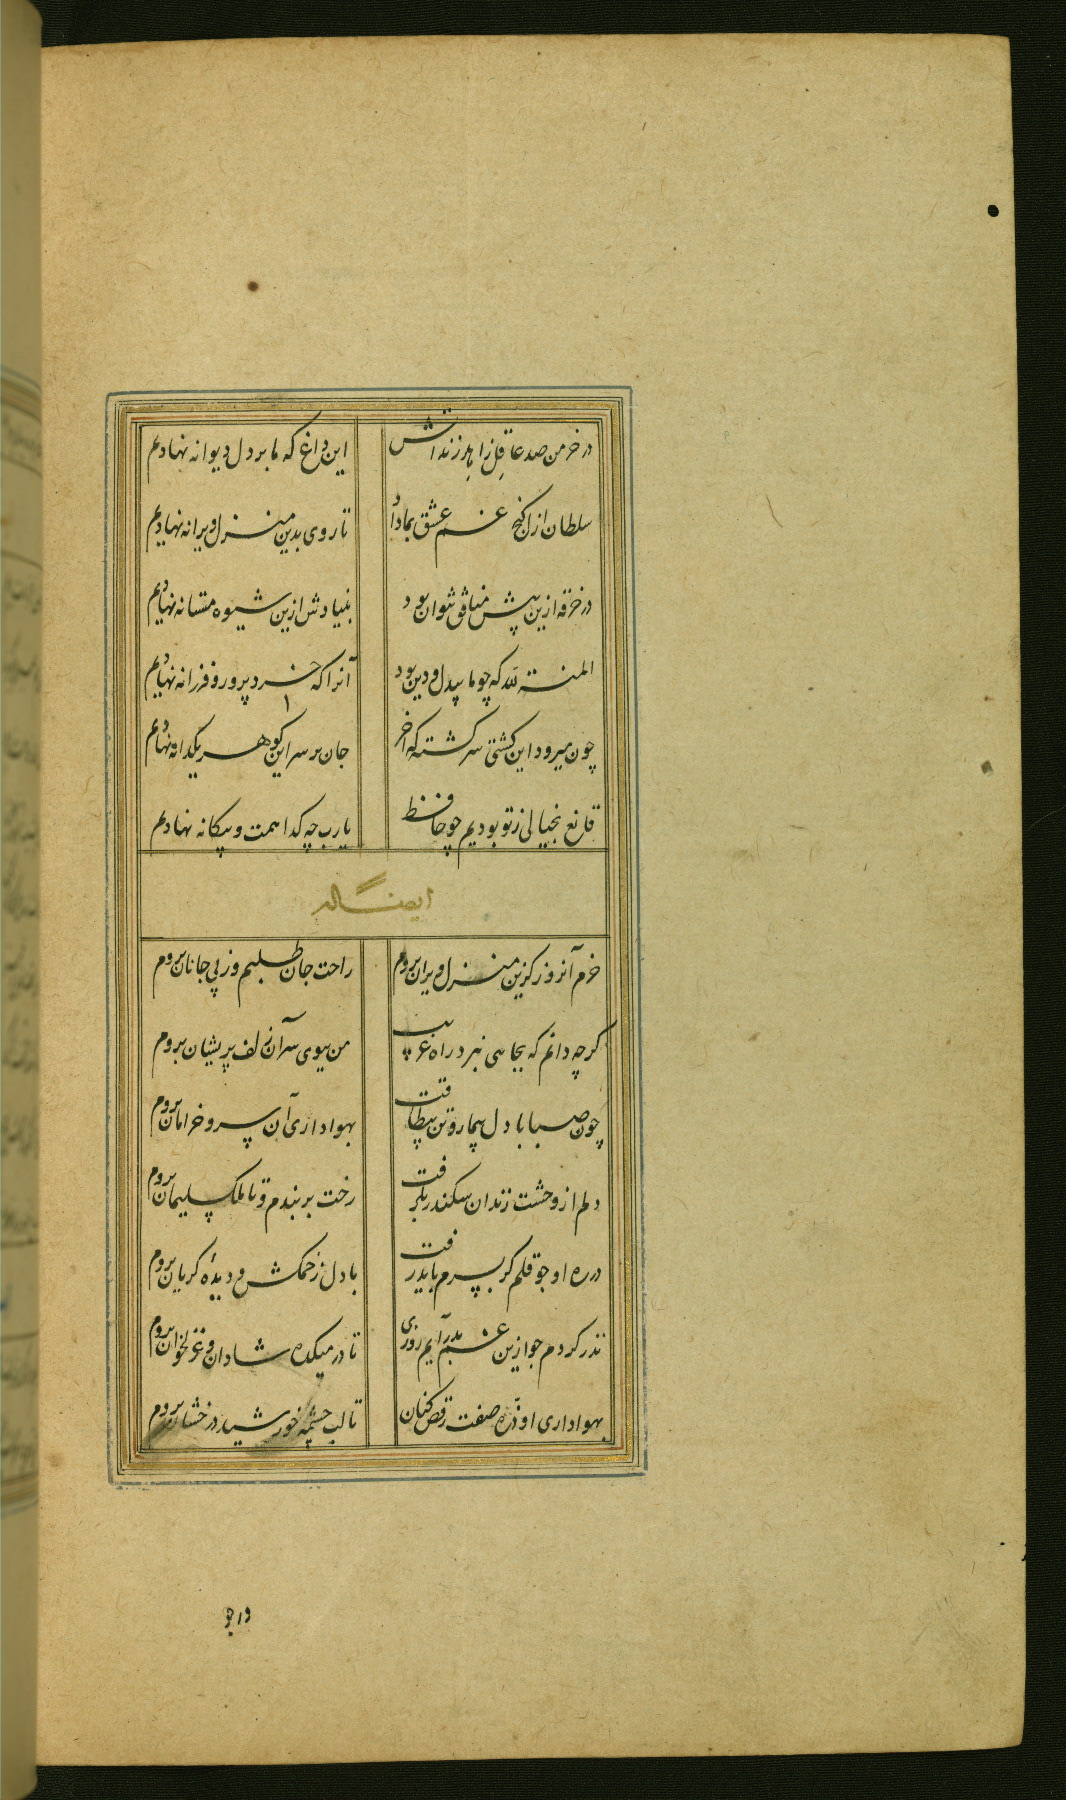 در خرمن صد عاقل زاهد زند آتش این داغ که ما بر دل دیوانه نهادیم
سلطان ازل کنج غم عشق بما داد تا روی بدین منزل ویرانه نهادیم
در خرقه ازین بیش منافق نتوان بود بنیادش ازین شیوه مستانه نهادیم
المنة لله که چو ما بیدل و دین بود آنرا که خرد پرور و فرزانه نهادیم
چون میرود این کشتی سرکشته که آخر جان بر سر این کوهر یکدانه نهادیم
قانع بخیالی ز تو بودیم چو حافظ یا رب چه کدا همت و بیکانه نهادیم
ایضا له
خرم آنروز کزین منزل ویران بروم راحت جان طلبم وز پی جانان بروم
کرچه دانم که بجایی نبرد راه غریب من ببوی سر آن زلف پریشان بروم
چون صبا با دل بیمار و تن بیطاقت بهواداری آن سرو خرامان بروم
دلم از وحشت زندان سکندر بکرفت رخت بربندم و تا ملک سلیمان بروم
در ره او چو قلم کر بسرم باید رفت با دل زخمکش و دیدهٔ کریان بروم
نذر کردم جو ازین غم بدر آیم روزی تا در میکده شادان و غزلخوان بروم
بهواداری او ذره صفت رقص کنان تا لب چشمه خورشید درخشان بروم